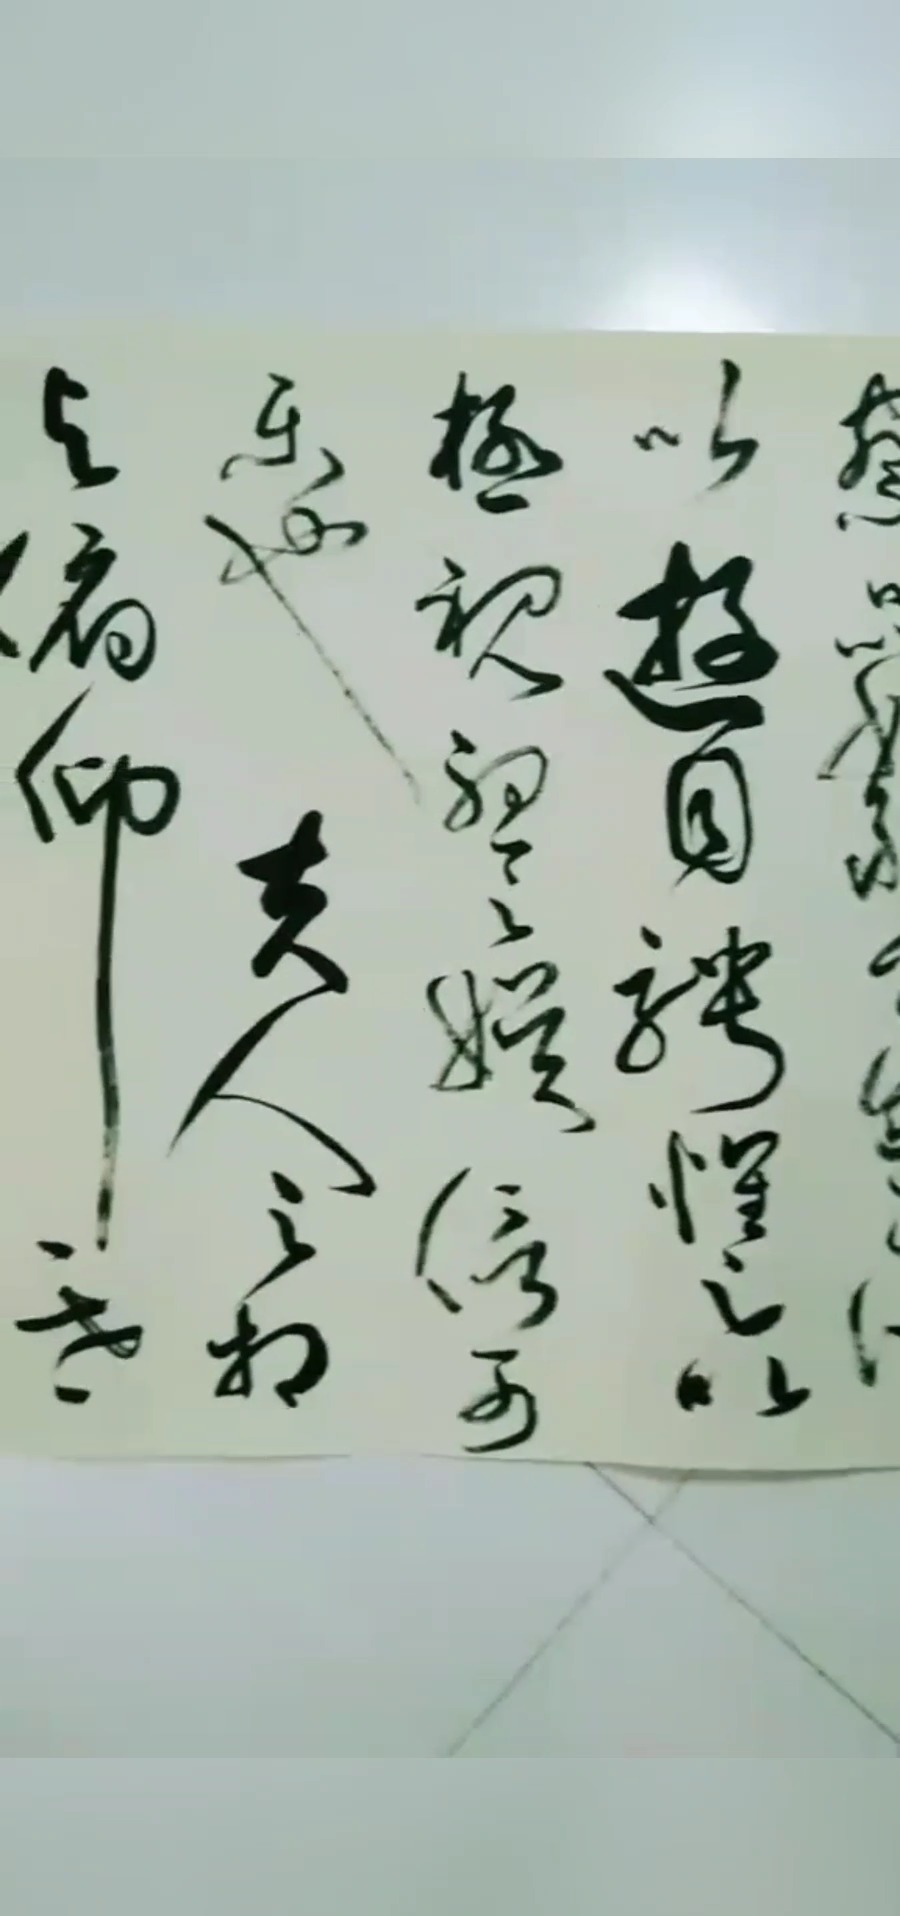 察品類之盛所
以遊目騁懷足以
極視聽之娛信可
樂也夫人之相
與俯仰一世